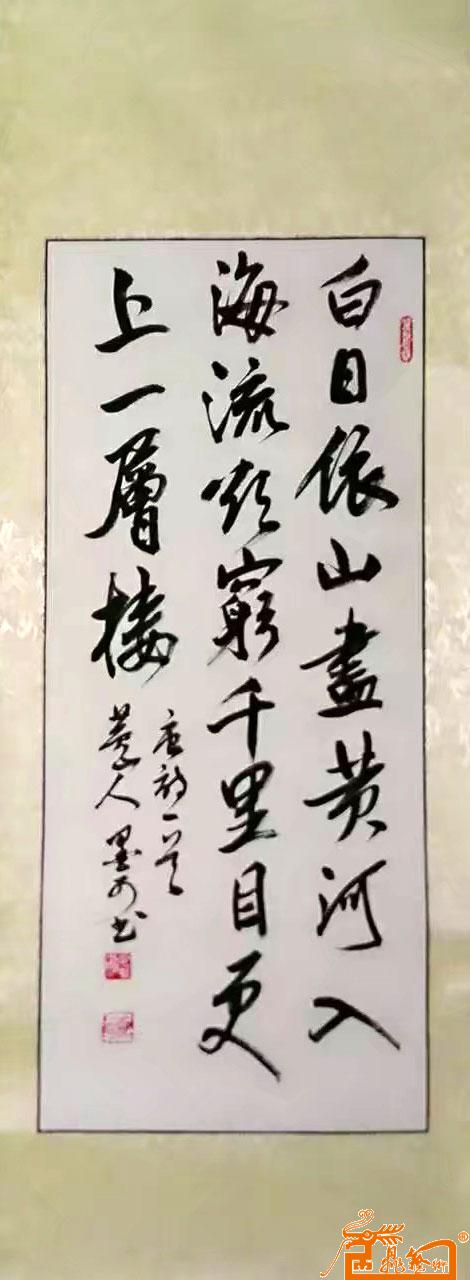 白日依山盡黄河入
海流欲窮千里目更
上一層楼
唐詩一首
墨耕書